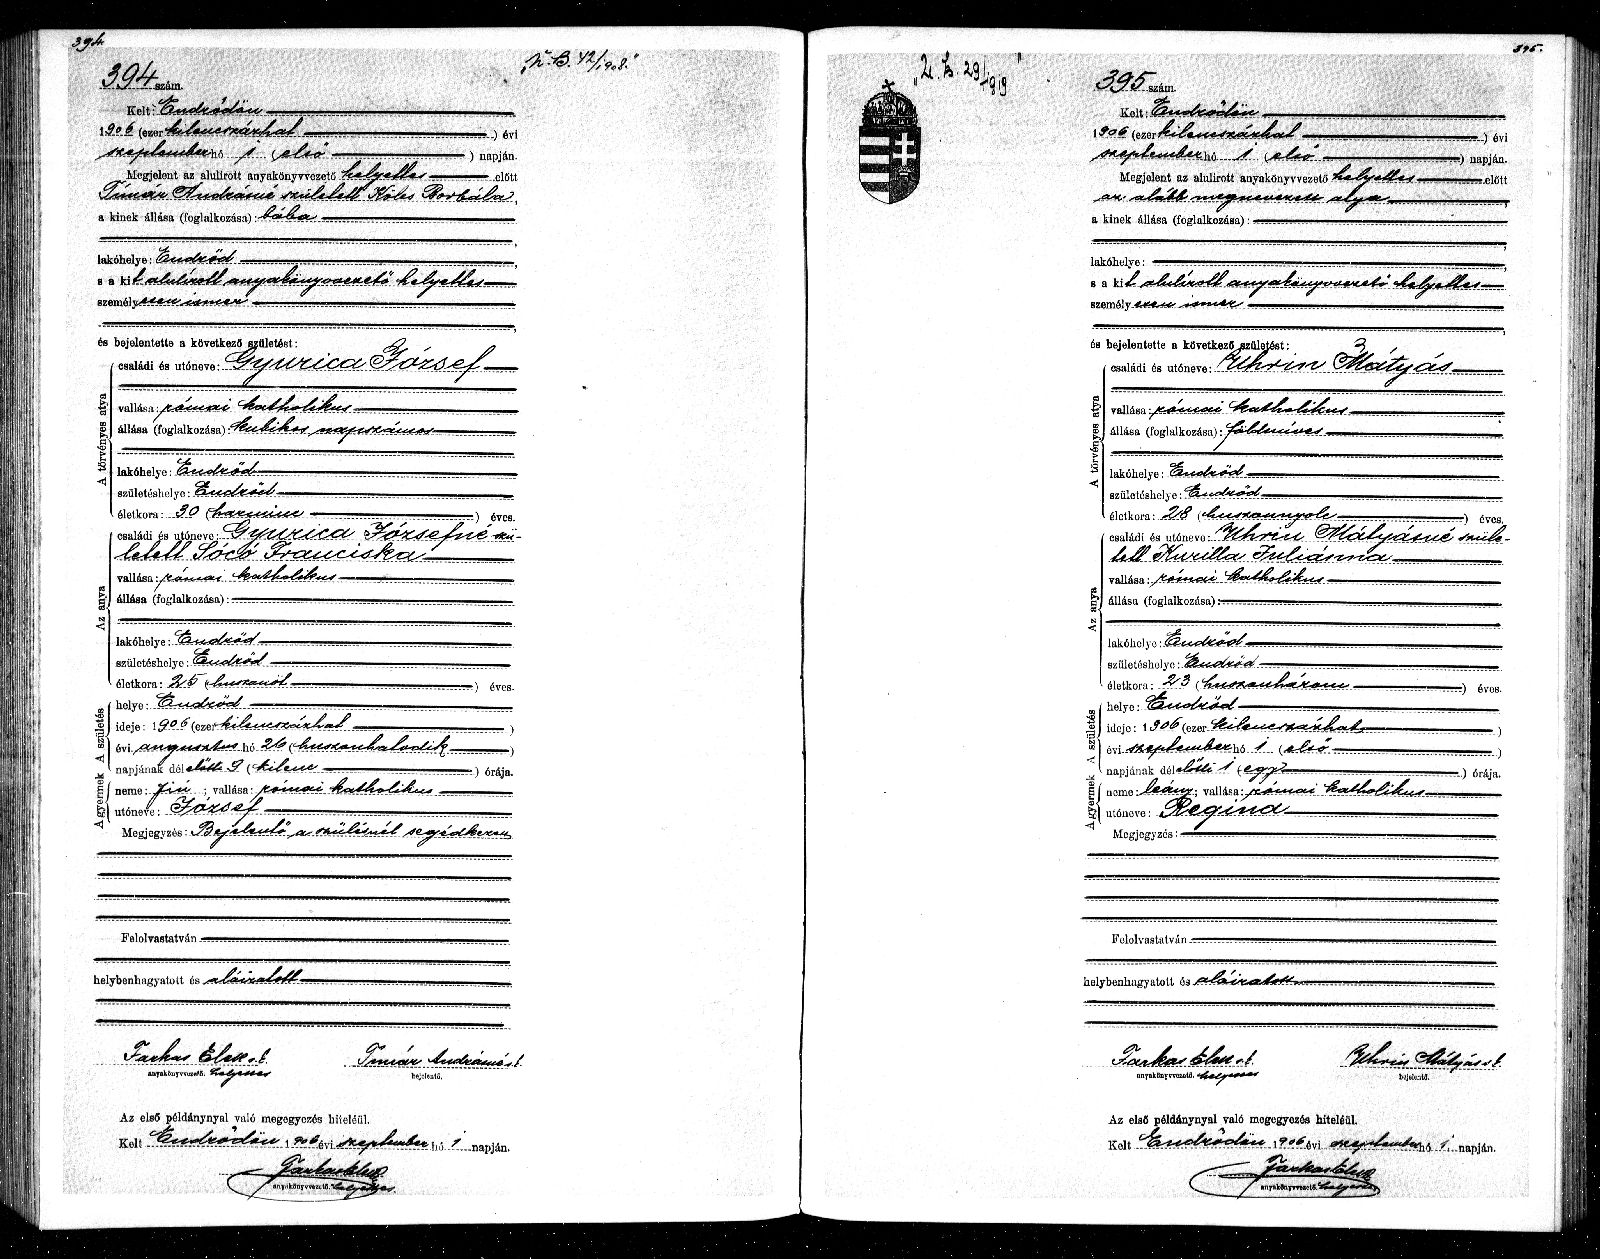 394.
394 szám.
„N. B. 42/1908."
Kelt: Endrődön
1906 (ezer kilencszázhat) évi
szeptember hó 1 (első) napján.
Megjelent az alulirott anyakönyvvezető helyettes előtt
Tímár Andrásné született Kóles Borbála,
a kinek állása (foglalkozása): bába
lakóhelye: Endrőd,
s a kit alulírott anyakönyvvezető helyettes
személyesen ismer,
és bejelentette a következő születést:
A törvényes atya
családi és utóneve: Gyurica József
vallása: római katholikus
állása (foglalkozása): kubikos napszámos
lakóhelye: Endrőd
születéshelye: Endrőd
életkora: 30 (harminc) éves.
Az anya
családi és utóneve: Gyurica Józsefné szü-
letett Sócó Franciska
vallása: római katholikus
állása (foglalkozása):
lakóhelye: Endrőd
születéshelye: Endrőd
életkora: 25 (huszonöt) éves.
A születés
helye: Endrőd
ideje: 1906 (ezer kilencszázhat)
évi augusztus hó 26 (huszonhatodik)
napjának délelőtt 9 (kilenc) órája.
A gyermek
neme: fiú; vallása: római katholikus
utóneve: József
Megjegyzés: Bejelentő a szülésnél segédkezett
Felolvastatván
helybenhagyatott és aláiratott
Farkas Elek s. k. Timár Andrásné s. k.
anyakönyvvezető. helyettes bejelentő.
Az első példánynyal való megegyezés hiteléül.
Kelt Endrődön 1906 évi szeptember hó 1 napján.
Farkas Elek
anyakönyvvezető. helyettes
395.
395 szám.
Kelt: Endrődön
1906 (ezer kilencszázhat) évi
szeptember hó 1 (első) napján.
Megjelent az alulirott anyakönyvvezető helyettes előtt
az alább megnevezett atya,
a kinek állása (foglalkozása):
lakóhelye:
s a kit alulírott anyakönyvvezető helyettes
személyesen ismer
és bejelentette a következő születést:
A törvényes atya
családi és utóneve: Uhrin Mátyás
vallása: római katholikus
állása (foglalkozása): földmíves
lakóhelye: Endrőd
születéshelye: Endrőd
életkora: 28 (huszonnyolc) éves.
Az anya
családi és utóneve: Uhrin Mátyásné szüle-
tett Kurilla Juliánna
vallása: római katholikus
állása (foglalkozása):
lakóhelye: Endrőd
születéshelye: Endrőd
életkora: 23 (huszonhárom) éves.
A születés
helye: Endrőd
ideje: 1906 (ezer kilencszázhat)
évi szeptember hó 1 (első)
napjának délelőtti 1 (egy) órája.
A gyermek
neme: leány; vallása: római katholikus
utóneve: Regina
Megjegyzés:
Felolvastatván
helybenhagyatott és aláiratott
Farkas Elek s. k. Uhrin Mátyás s. k.
anyakönyvvezető. helyettes bejelentő.
Az első példánynyal való megegyezés hiteléül.
Kelt Endrődön 1906 évi szeptember hó 1 napján.
Farkas Elek
anyakönyvvezető. helyettes